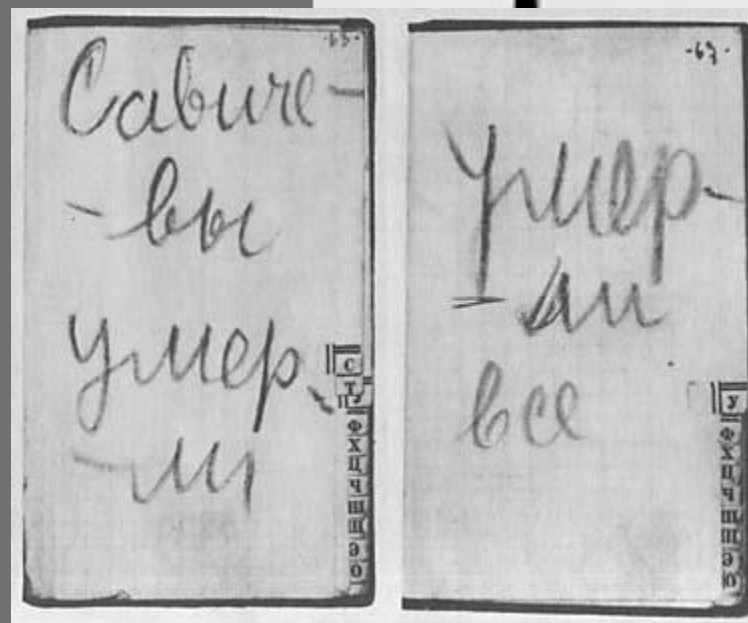 ·65·
Савиче-
-вы
умер-
-ли
С
Т
У
Ф
Х
Ц
Ч
Ш
Щ
Э
·67·
Умер-
-ли
все
У
Ф
Х
Ц
Ч
Ш
Щ
Э